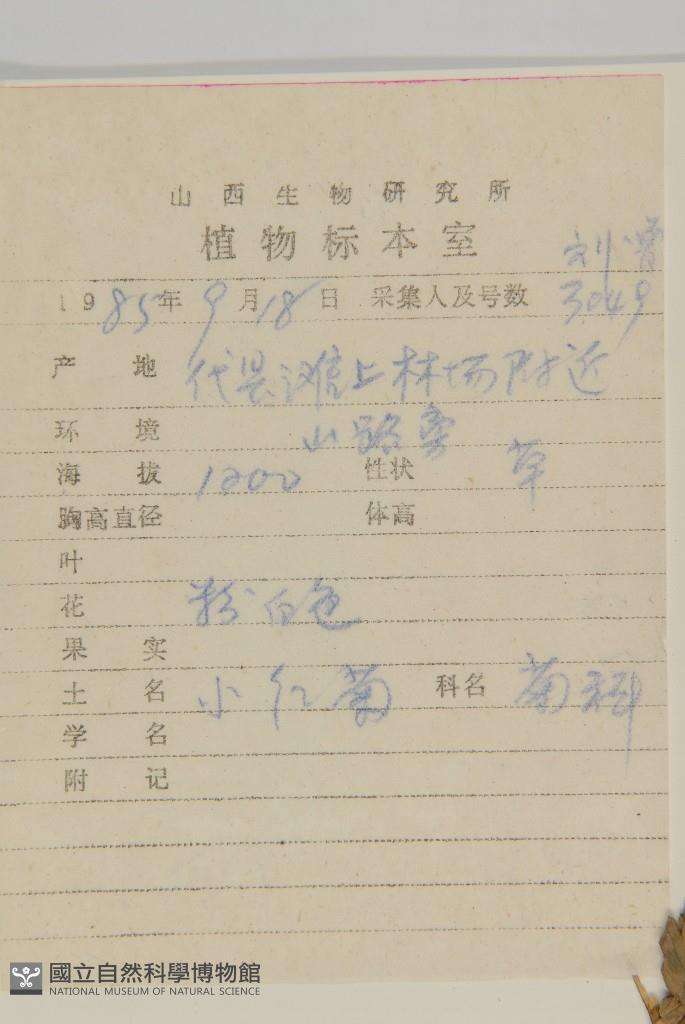 山西生物研究所
植物标本室
刘
1985年9月18日 采集人及号数 3049
产地 代县滩上林场附近
环境 山路旁
海拔 1200 性状 草
胸高直径 体高
叶
花 粉白色
果实
土名 小红菊 科名 菊科
学名
附记
國立自然科學博物館
NATIONAL MUSEUM OF NATURAL SCIENCE